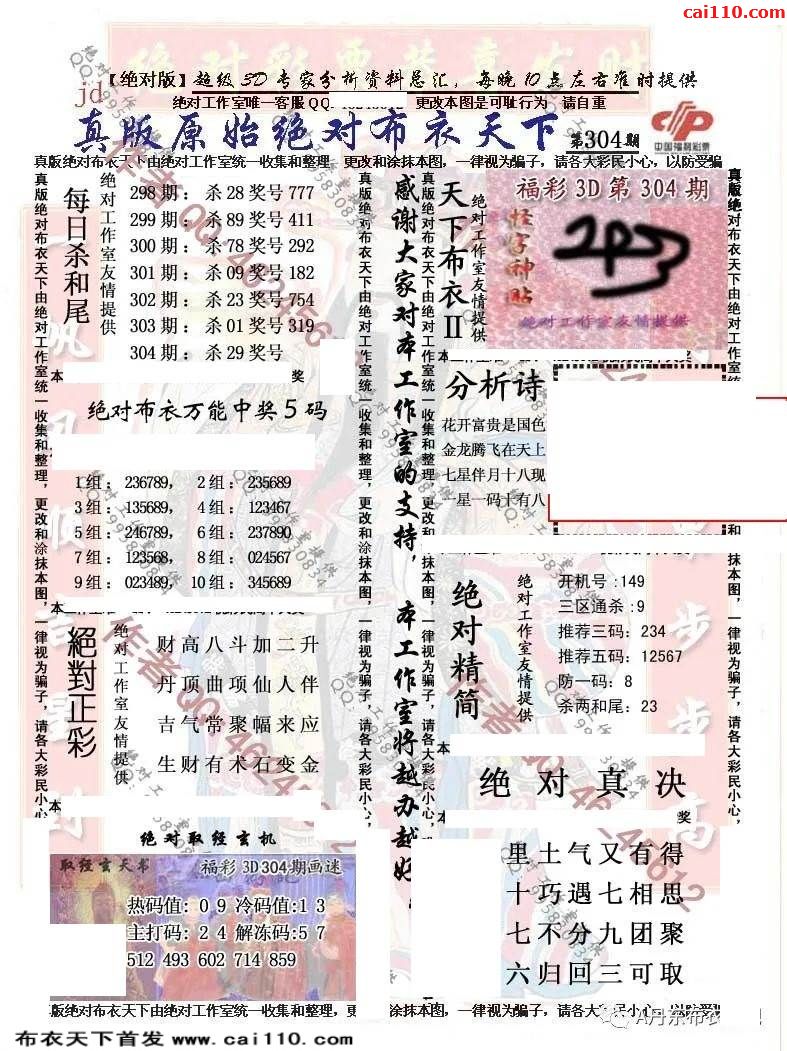 cai110.com
【绝对版】超级3D专家分析资料总汇，每晚10点左右准时提供
jd
绝对工作室唯一客服QQ 更改本图是可耻行为 请自重
真版原始绝对布衣天下
第304期
中国福利彩票
真版绝对布衣天下由绝对工作室统一收集和整理，更改和涂抹本图，一律视为骗子，请各大彩民小心，以防受骗
每日杀和尾
绝对工作室友情提供
298期：杀28奖号777
299期：杀89奖号411
300期：杀78奖号292
301期：杀09奖号182
302期：杀23奖号754
303期：杀01奖号319
304期：杀29奖号
本
奖
绝对布衣万能中奖5码
1组：236789，2组：235689
3组：135689，4组：123467
5组：246789，6组：237890
7组：123568，8组：024567
9组：023489，10组：345689
絕對正彩
绝对工作室友情提供
财高八斗加二升
丹顶曲项仙人伴
吉气常聚幅来应
生财有术石变金
绝对取经玄机
取经玄天书
福彩3D304期画迷
热码值：09冷码值：13
主打码：24解冻码：57
512 493 602 714 859
真版绝对布衣天下由绝对工作室统一收集和整理，更改和涂抹本图，一律视为骗子，请各大彩民小心，
感谢大家对本工作室的支持，本工作室将越办越好
天下布衣II
绝对工作室友情提供
福彩3D第304期
怪字神贴
绝对工作室友情提供
分析诗
花开富贵是国色
金龙腾飞在天上
七星伴月十八现
一星一码士有八
绝对精简
绝对工作室友情提供
开机号：149
三区通杀：9
推荐三码：234
推荐五码：12567
防一码：8
杀两和尾：23
绝对真决
奖
里土气又有得
十巧遇七相思
七不分九团聚
六归回三可取
版绝对布衣天下由绝对工作室统一收集和整理，更
涂抹本图，一律视为骗子，请各大彩民小心，以防受骗
A丹东布衣
布衣天下首发 www.cai110.com